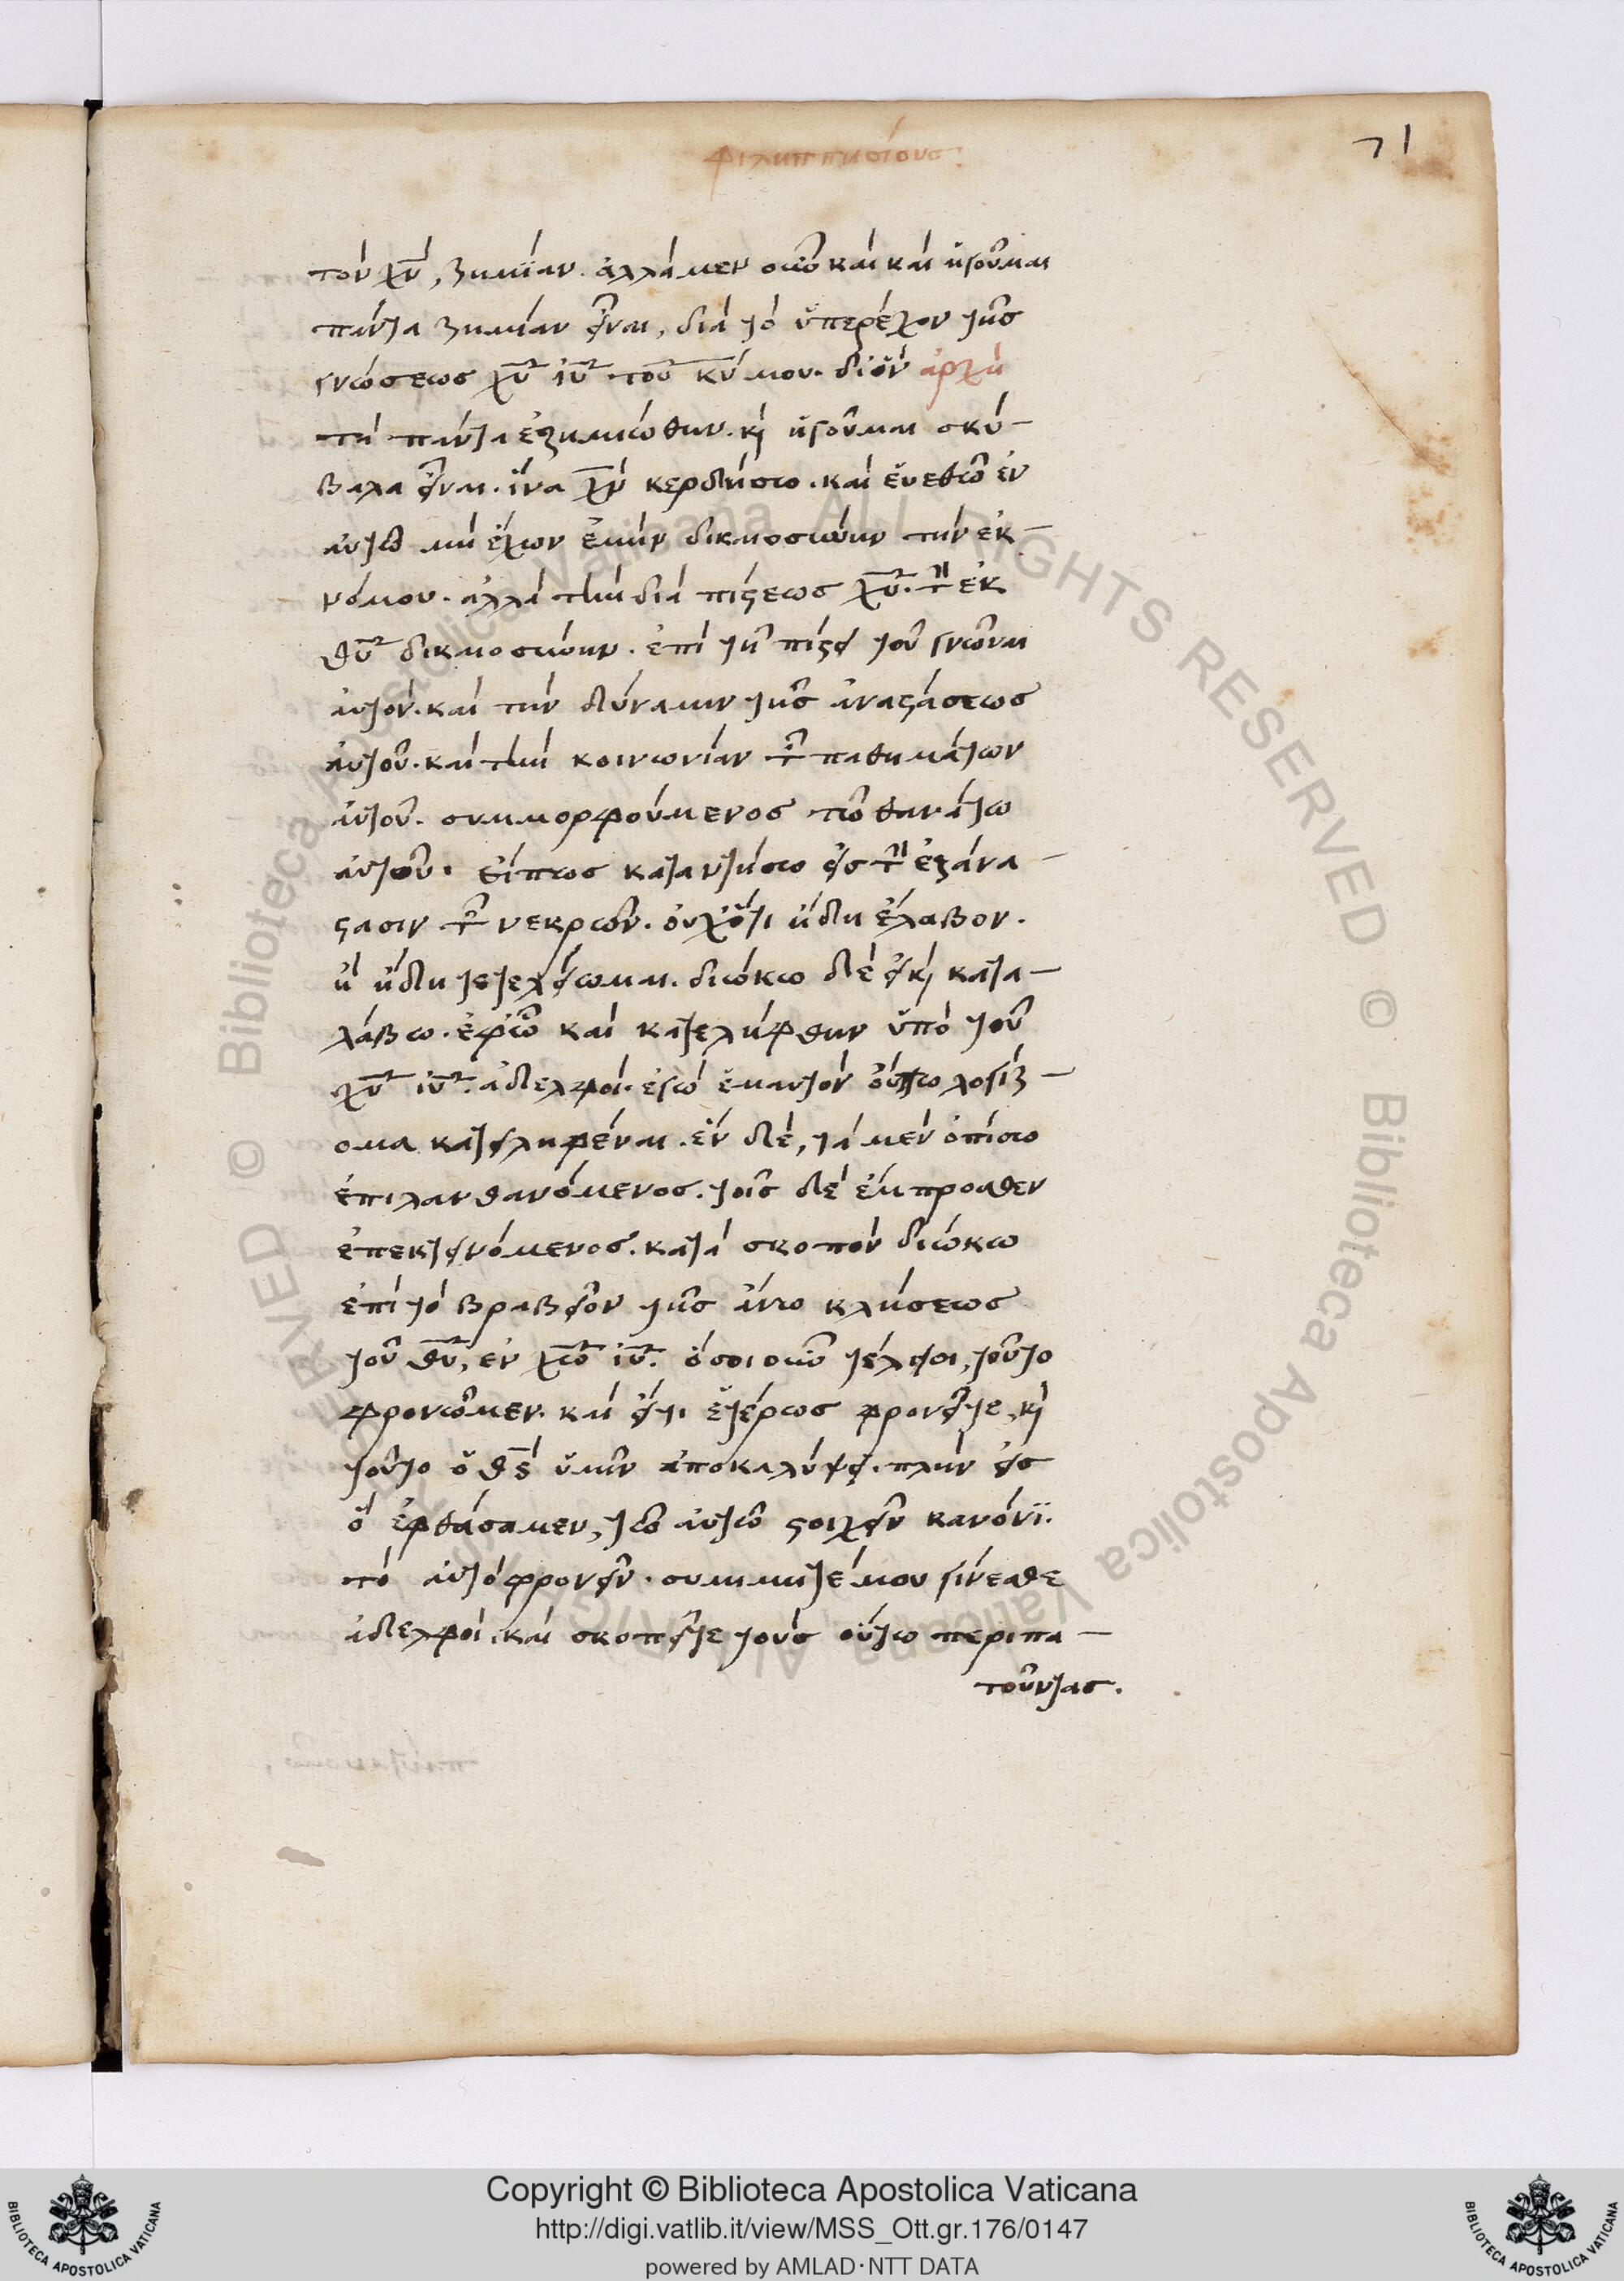 φιλιππησίους:
71
τὸν χν̅, ζημίαν. ἀλλὰ μὲν οὖν καὶ καὶ ἡγοῦμαι
πάντα ζημίαν εἶναι, διὰ τὸ ὑπερέχον τῆς
γνώσεως χυ̅ ιυ̅ τοῦ κυ̅ μου. δι' ὃν ἀρχὴ
τὰ πάντα ἐζημιώθην. καὶ ἡγοῦμαι σκύ-
βαλα εἶναι. ἵνα χν̅ κερδήσω. καὶ εὑρεθῶ ἐν
αὐτῶ μὴ ἔχων ἐμὴν δικαιοσύνην τὴν ἐκ-
νόμου. ἀλλὰ τὴν διὰ πίστεως χυ̅. τὴν ἐκ
θυ̅ δικαιοσύνην. ἐπὶ τῆ πίστει τοῦ γνῶναι
αὐτὸν. καὶ τὴν δύναμιν τῆς ἀναστάσεως
αὐτοῦ. καὶ τὴν κοινωνίαν τῶν παθημάτων
αὐτοῦ. συμμορφούμενος τῶ θανάτω
αὐτοῦ. εἴπως καταντήσω εἰς τὴν ἐξανά-
στασιν τῶν νεκρῶν. οὐχ ὅτι ἤδη ἔλαβον.
ἢ ἤδη τετελείωμαι. διώκω δὲ εἰ καὶ κατα-
λάβω. ἐφ' ὧ καὶ κατελήφθην ὑπὸ τοῦ
χυ̅ ιυ̅. ἀδελφοί. ἐγὼ ἐμαυτὸν οὔπω λογίζ-
ομα κατειληφέναι. ἓν δὲ, τὰ μὲν ὀπίσω
ἐπιλανθανόμενος. τοῖς δὲ ἔμπροσθεν
ἐπεκτεινόμενος. κατὰ σκοπὸν διώκω
ἐπὶ τὸ βραβεῖον τῆς ἄνω κλήσεως
τοῦ θυ̅, ἐν χω̅ ιυ̅. ὅσοι οὖν τέλειοι, τοῦτο
φρονῶμεν. καὶ εἴ τι ἑτέρως φρονεῖτε, καὶ
τοῦτο ὁ θς̅ ὑμῖν ἀποκαλύψει. πλὴν εἰς
ὃ ἐφθάσαμεν, τῶ αὐτῶ στοιχεῖν κανόνϊ.
τὸ αὐτὸ φρονεῖν. συμμιμηταί μου γίνεσθε
ἀδελφοί. καὶ σκοπεῖτε τοὺς οὕτω περιπα-
τοῦντας.
Copyright © Biblioteca Apostolica Vaticana
http://digi.vatlib.it/view/MSS_Ott.gr.176/0147
powered by AMLAD·NTT DATA